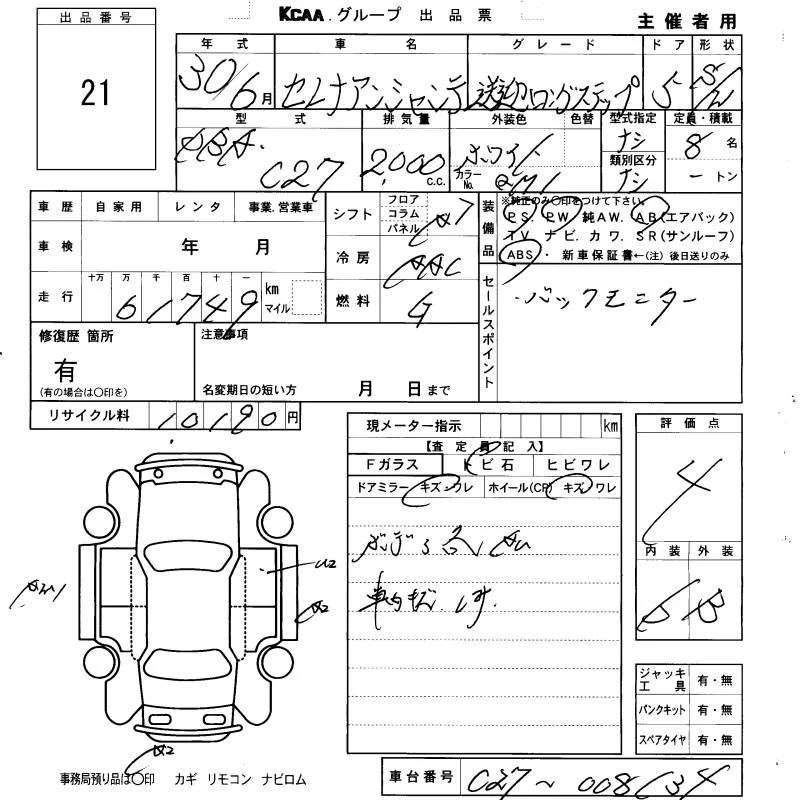 KCAA.グループ 出品票
主催者用
出品番号
21
年式 車名 グレード ドア 形状
30/6月 セレナアンシャンテ 送迎ロングステップ 5 S/W
型式 排気量 外装色 色替 型式指定 定員・積載
DBA- C27 2,000 C.C. ホワイト ナシ 8名
カラーNo. QM1 類別区分 ナシ ートン
車歴 自家用 レンタ 事業.営業車
シフト フロア コラム パネル
装備品 ※純正のみ〇印をつけて下さい。
PS. PW. 純AW. AB(エアバック)
TV. ナビ. カワ. SR(サンルーフ)
ABS・ 新車保証書←(注)後日送りのみ
車検 年 月
冷房 AAC
走行 十万 万 千 百 十 一
61749 km マイル
燃料 G
セールスポイント
・バックモニター
修復歴 箇所
有
(有の場合は〇印を)
注意事項
名変期日の短い方 月 日まで
リサイクル料 10190円
現メーター指示 km
【査定員記入】
Fガラス トビ石 ヒビワレ
ドアミラー キズ・ワレ ホイール(CP) キズ ワレ
車内キズ
評価点
4
内装 外装
B B
A2
ジャッキ工具 有・無
パンクキット 有・無
スペアタイヤ 有・無
事務局預り品は〇印 カギ リモコン ナビロム
車台番号 C27〜008134